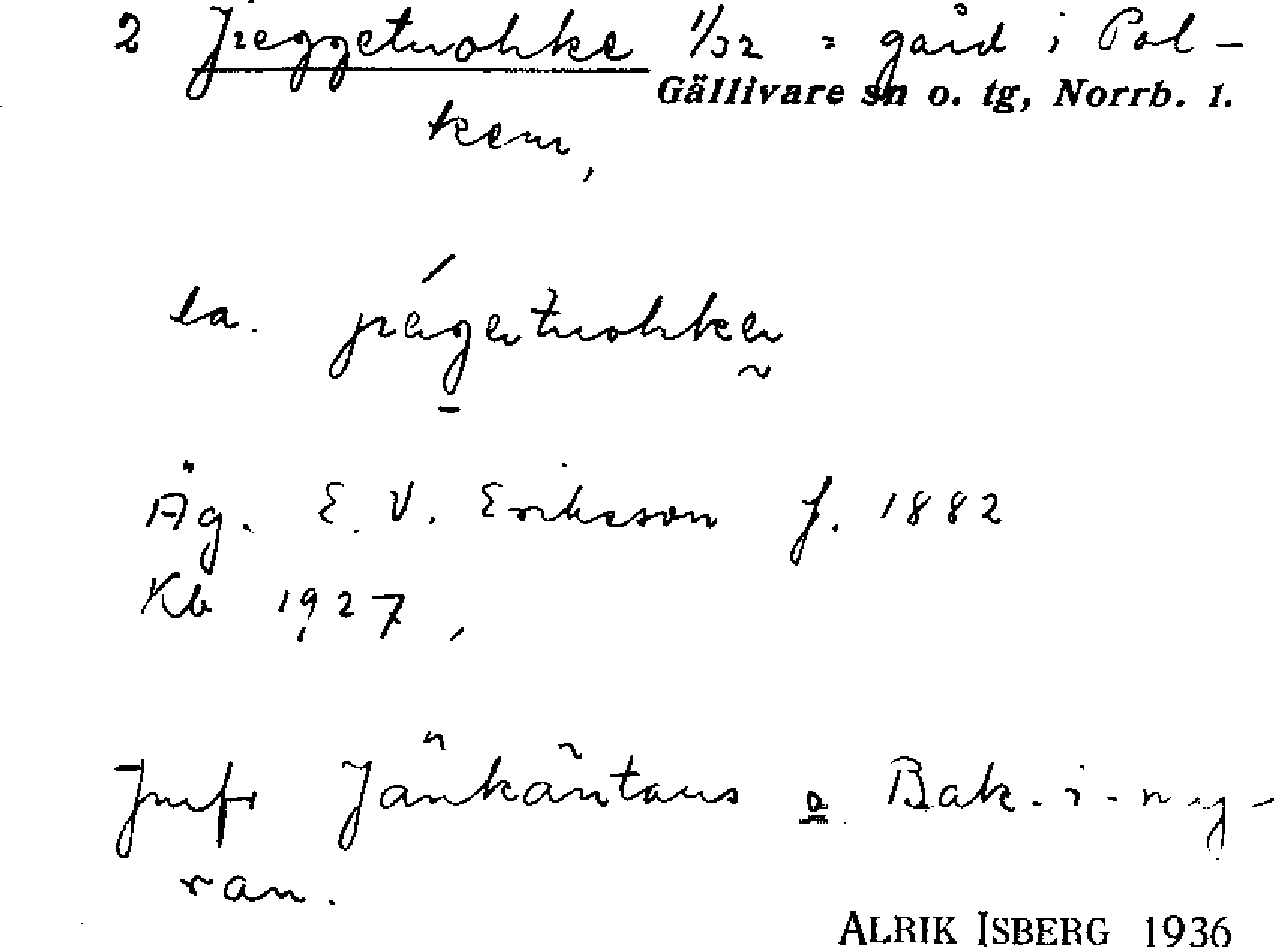 2 Jieggetuohke 1/32 = gård i Pol-
Gällivare sn o. tg, Norrb. l.
kem,
la. jiégetuohke
Äg. E. V. Eriksson f. 1882
Kb 1927,
Jmfr Jänkäntaus o Bak-i-my-
ran.
ALRIK ISBERG 1936